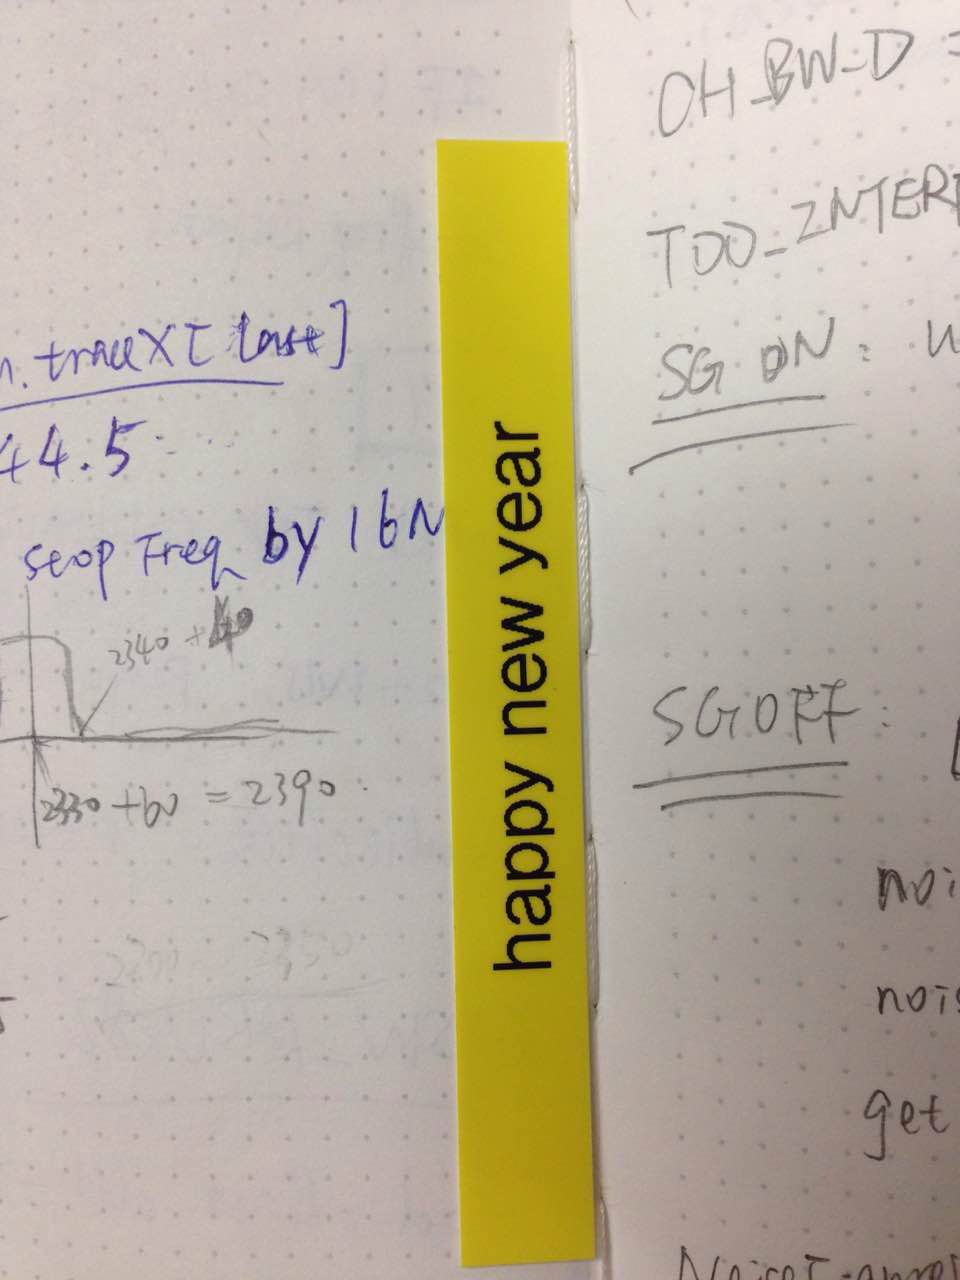 n.traceX[last]
44.5
stop Freq by 16N
2340 +
2330 +60 = 2390
happy new year
CH_BW_D =
TOO_INTERF
SG ON:
SG OFF:
noi
nois
get